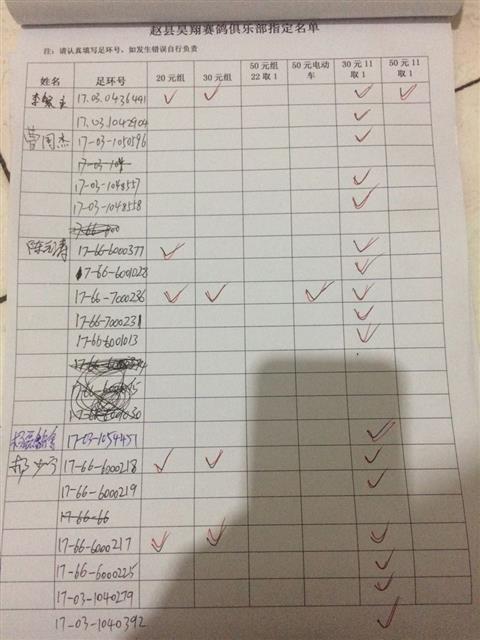 赵县昊翔赛鸽俱乐部指定名单
注：请认真填写足环号、如发生错误自行负责
姓名 足环号 20元组 30元组 50元组22取1 50元电动车 30元11取1 50元11取1
17.03.0436441 ✓ ✓ ✓ ✓
17.03.1042904 ✓
曹国杰 17-03-1050596 ✓
17-03-104
17-03-1048557 ✓
17-03-1048558 ✓
17-66-6000377 ✓ ✓
17-66-6001028 ✓
17-66-7000236 ✓ ✓ ✓ ✓
17-66-7000231 ✓
17-66-6001013 ✓
17-03-1054457 ✓
17-66-6000218 ✓ ✓ ✓
17-66-6000219 ✓
17-66-66
17-66-6000217 ✓ ✓ ✓
17-66-6000225 ✓
17-03-1040279 ✓
17-03-1040392 ✓